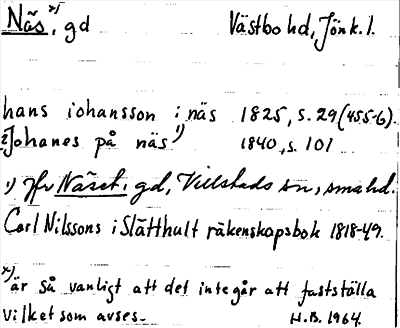 Näs, x) gd Västbo hd, Jönk. l.
hans iohansson i näs 1825, s. 29 (455-6).
Johanes på näs 1) 1840, s. 101
1) Jfr Näset, gd, Villstads sn, sma hd.
Carl Nilssons i Slätthult räkenskapsbok 1818-49.
x) är så vanligt att det inte går att fastställa
vilket som avses. H.B. 1964.